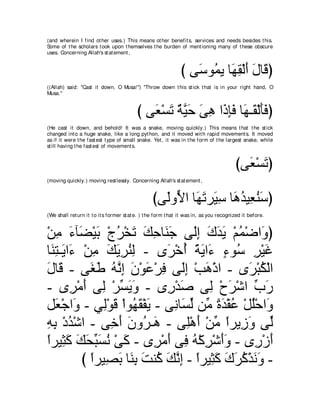 (and wherein I find other uses.) This means other benefits, services and needs besides this.
Some of the scholars took upon themselves the burden of mentioning many of these obscure
uses. Concerning Allah's statement,
﴿قَالَ أَلْقِهَا يمُوسَى ﴾
((Allah) said: "Cast it down, O Musa!'') "Throw down this stick that is in your right hand, O
Musa.''
﴿فَأَلْقَـهَا فَإِذَا هِىَ حَيَّةٌ تَسْعَى ﴾
(He cast it down, and behold! It was a snake, moving quickly.) This means that the stick
changed into a huge snake, like a long python, and it moved with rapid movements. It moved
as if it were the fastest type of small snake. Yet, it was in the form of the largest snake, while
still having the fastest of movements.
﴿تَسْعَى﴾
(moving quickly.) moving restlessly. Concerning Allah's statement,
﴿سَنُعِيدُهَا سِيَرَتَهَا الاٍّولَى﴾
(We shall return it to its former state.) the form that it was in, as you recognized it before.
﴿وَاضْمُمْ يَدَكَ إِلَى جَنَاحِكَ تَخْرُجْ بَيْضَآءَ مِنْ
غَيْرِ سُوءٍ ءَايَةً أُخْرَى - لِنُرِيَكَ مِنْ ءَايَـتِنَا
الْكُبْرَى - اذْهَبْ إِلَى فِرْعَوْنَ إِنَّهُ طَغَى - قَالَ
رَبِّ اشْرَحْ لِى صَدْرِى - وَيَسِّرْ لِى أَمْرِى -
وَاحْلُلْ عُقْدَةً مِّن لِّسَانِى - يَفْقَهُوا قَوْلِي - وَاجْعَل
لِّى وَزِيراً مِّنْ أَهْلِى - هَـرُونَ أَخِى - اشْدُدْ بِهِ
أَزْرِى - وَأَشْرِكْهُ فِى أَمْرِى - كَىْ نُسَبِّحَكَ كَثِيراً
- وَنَذْكُرَكَ كَثِيراً - إِنَّكَ كُنتَ بِنَا بَصِيراً ﴾